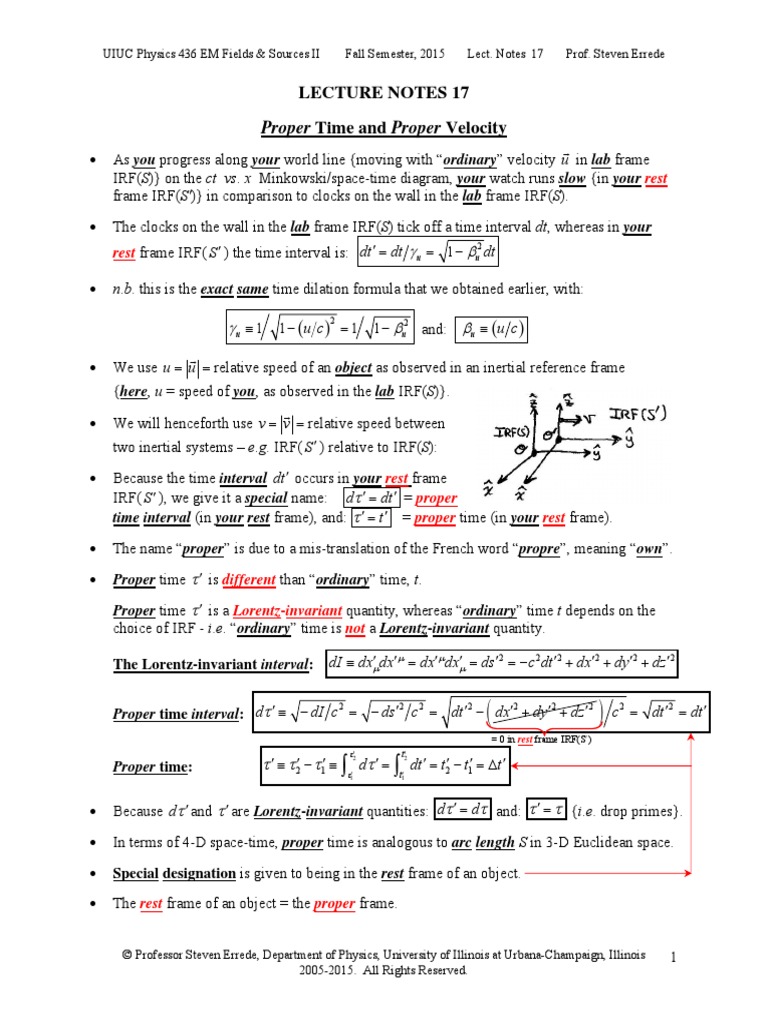 UIUC Physics 436 EM Fields & Sources II Fall Semester, 2015 Lect. Notes 17 Prof. Steven Errede
LECTURE NOTES 17
Proper Time and Proper Velocity
• As you progress along your world line {moving with “ordinary” velocity u⃗ in lab frame
IRF(S)} on the ct vs. x Minkowski/space-time diagram, your watch runs slow {in your rest
frame IRF(S′)} in comparison to clocks on the wall in the lab frame IRF(S).
• The clocks on the wall in the lab frame IRF(S) tick off a time interval dt, whereas in your
rest frame IRF(S′) the time interval is: dt′ = dt/γᵤ = √(1 − βᵤ²) dt
• n.b. this is the exact same time dilation formula that we obtained earlier, with:
γᵤ ≡ 1/√(1 − (u/c)²) = 1/√(1 − βᵤ²) and: βᵤ ≡ (u/c)
• We use u = |u⃗| = relative speed of an object as observed in an inertial reference frame
{here, u = speed of you, as observed in the lab IRF(S)}.
• We will henceforth use v = |v⃗| = relative speed between
two inertial systems – e.g. IRF(S′) relative to IRF(S):
ẑ ẑ IRF(S′)
IRF(S) v
O O′ ŷ ŷ
x̂ x̂
• Because the time interval dt′ occurs in your rest frame
IRF(S′), we give it a special name: dτ′ = dt′ = proper
time interval (in your rest frame), and: τ′ = t′ = proper time (in your rest frame).
• The name “proper” is due to a mis-translation of the French word “propre”, meaning “own”.
• Proper time τ′ is different than “ordinary” time, t.
Proper time τ′ is a Lorentz-invariant quantity, whereas “ordinary” time t depends on the
choice of IRF - i.e. “ordinary” time is not a Lorentz-invariant quantity.
The Lorentz-invariant interval: dI ≡ dx′_μ dx′^μ = dx′^μ dx′_μ = ds′² = −c²dt′² + dx′² + dy′² + dz′²
Proper time interval: dτ′ ≡ √(−dI/c²) = √(−ds′²/c²) = √(dt′² − (dx′² + dy′² + dz′²)/c²) = √(dt′²) = dt′
= 0 in rest frame IRF(S′)
Proper time: τ′ ≡ τ′₂ − τ′₁ ≡ ∫_{τ′₁}^{τ′₂} dτ′ = ∫_{t′₁}^{t′₂} dt′ = t′₂ − t′₁ = Δt′
• Because dτ′ and τ′ are Lorentz-invariant quantities: dτ′ = dτ and: τ′ = τ {i.e. drop primes}.
• In terms of 4-D space-time, proper time is analogous to arc length S in 3-D Euclidean space.
• Special designation is given to being in the rest frame of an object.
• The rest frame of an object = the proper frame.
© Professor Steven Errede, Department of Physics, University of Illinois at Urbana-Champaign, Illinois 1
2005-2015. All Rights Reserved.